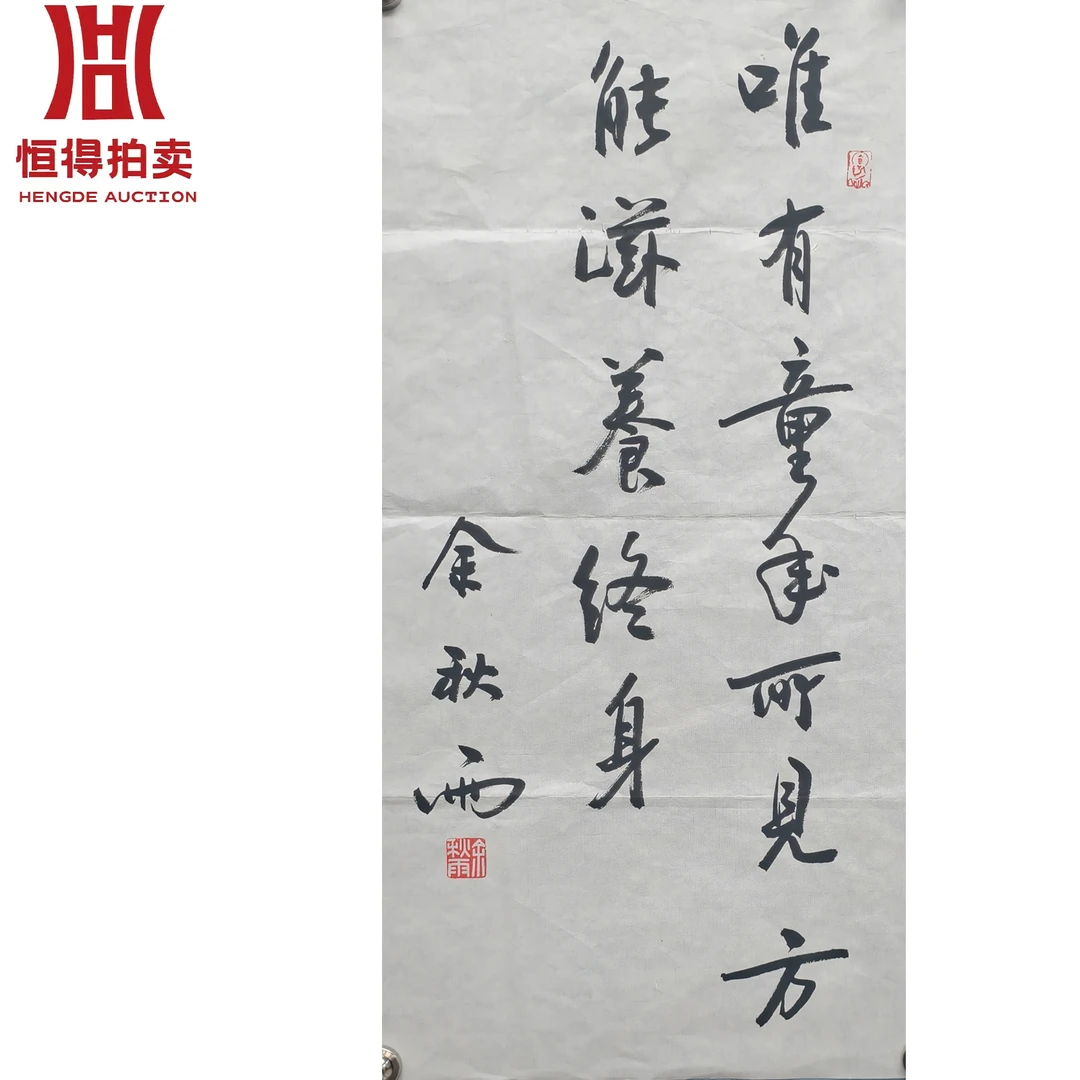 恒得拍卖
HENGDE AUCTION
唯有童年所見方
能滋養终身
余秋雨
余秋雨